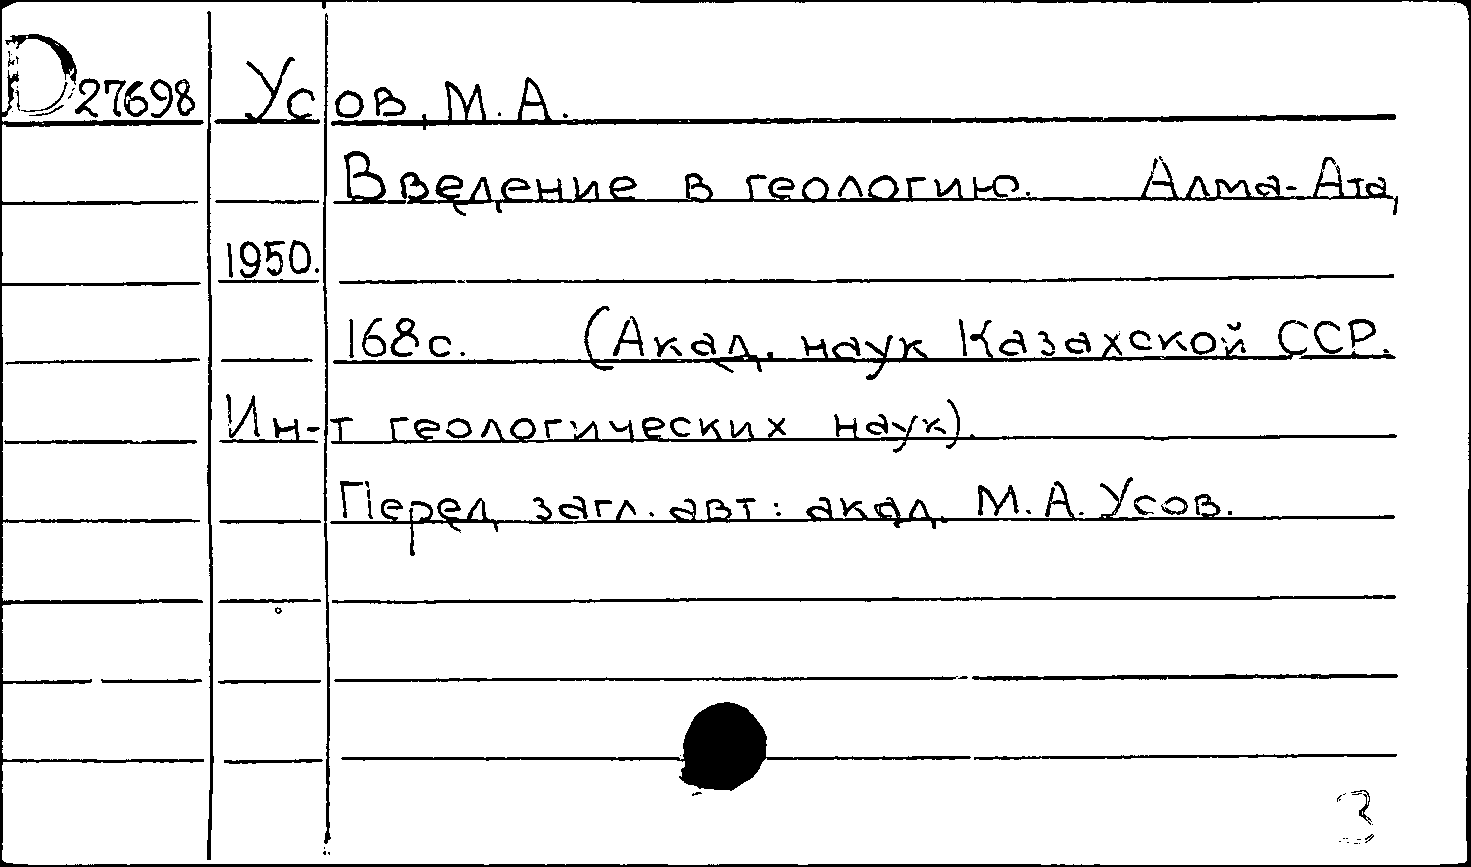 D27698 Усов, М. А.
Введение в геологию. Алма-Ата,
1950.
168с. (Акад. наук Казахской ССР.
Ин-т геологических наук).
Перед загл. авт: акад. М. А. Усов.
3